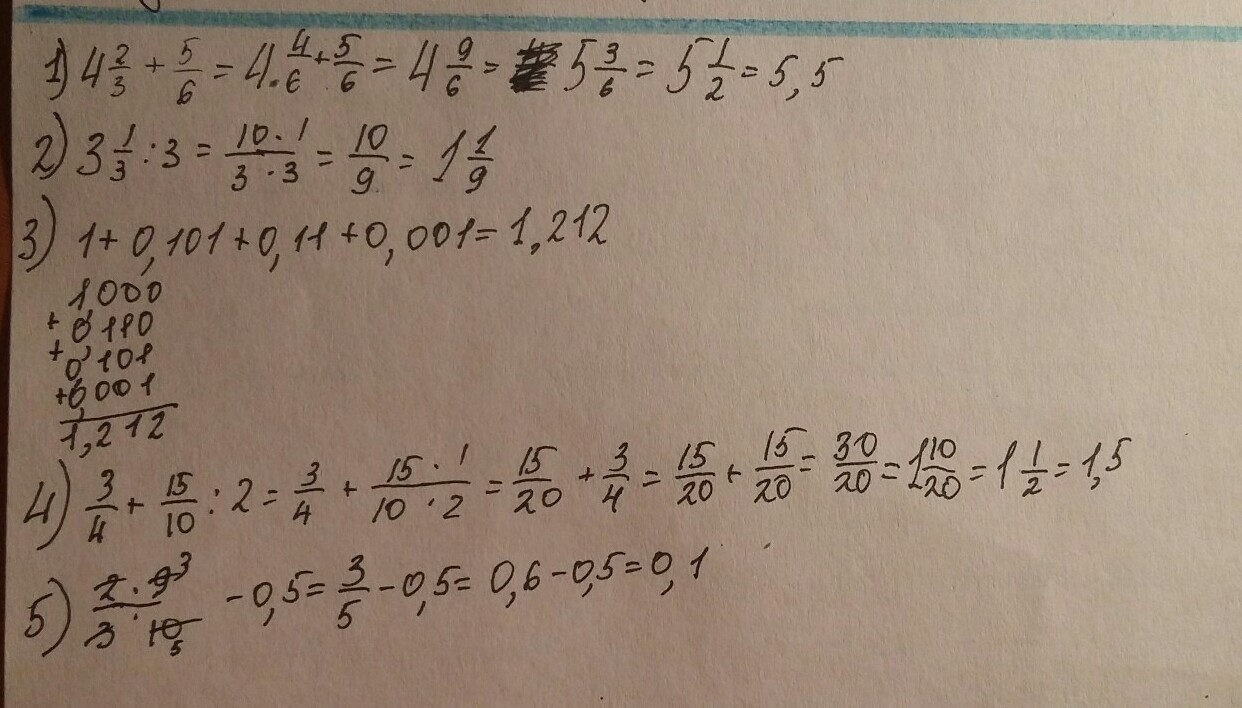 1) 4 2/3 + 5/6 = 4. 4/6 + 5/6 = 4 9/6 = 5 3/6 = 5 1/2 = 5,5
2) 3 1/3 : 3 = 10·1/3·3 = 10/9 = 1 1/9
3) 1 + 0,101 + 0,11 + 0,001 = 1,212
1000
+ 0,110
+ 0,101
+ 0,001
1,212
4) 3/4 + 15/10 : 2 = 3/4 + 15·1/10·2 = 15/20 + 3/4 = 15/20 + 15/20 = 30/20 = 1 10/20 = 1 1/2 = 1,5
5) 2·9 3/3·10 5 - 0,5 = 3/5 - 0,5 = 0,6 - 0,5 = 0,1